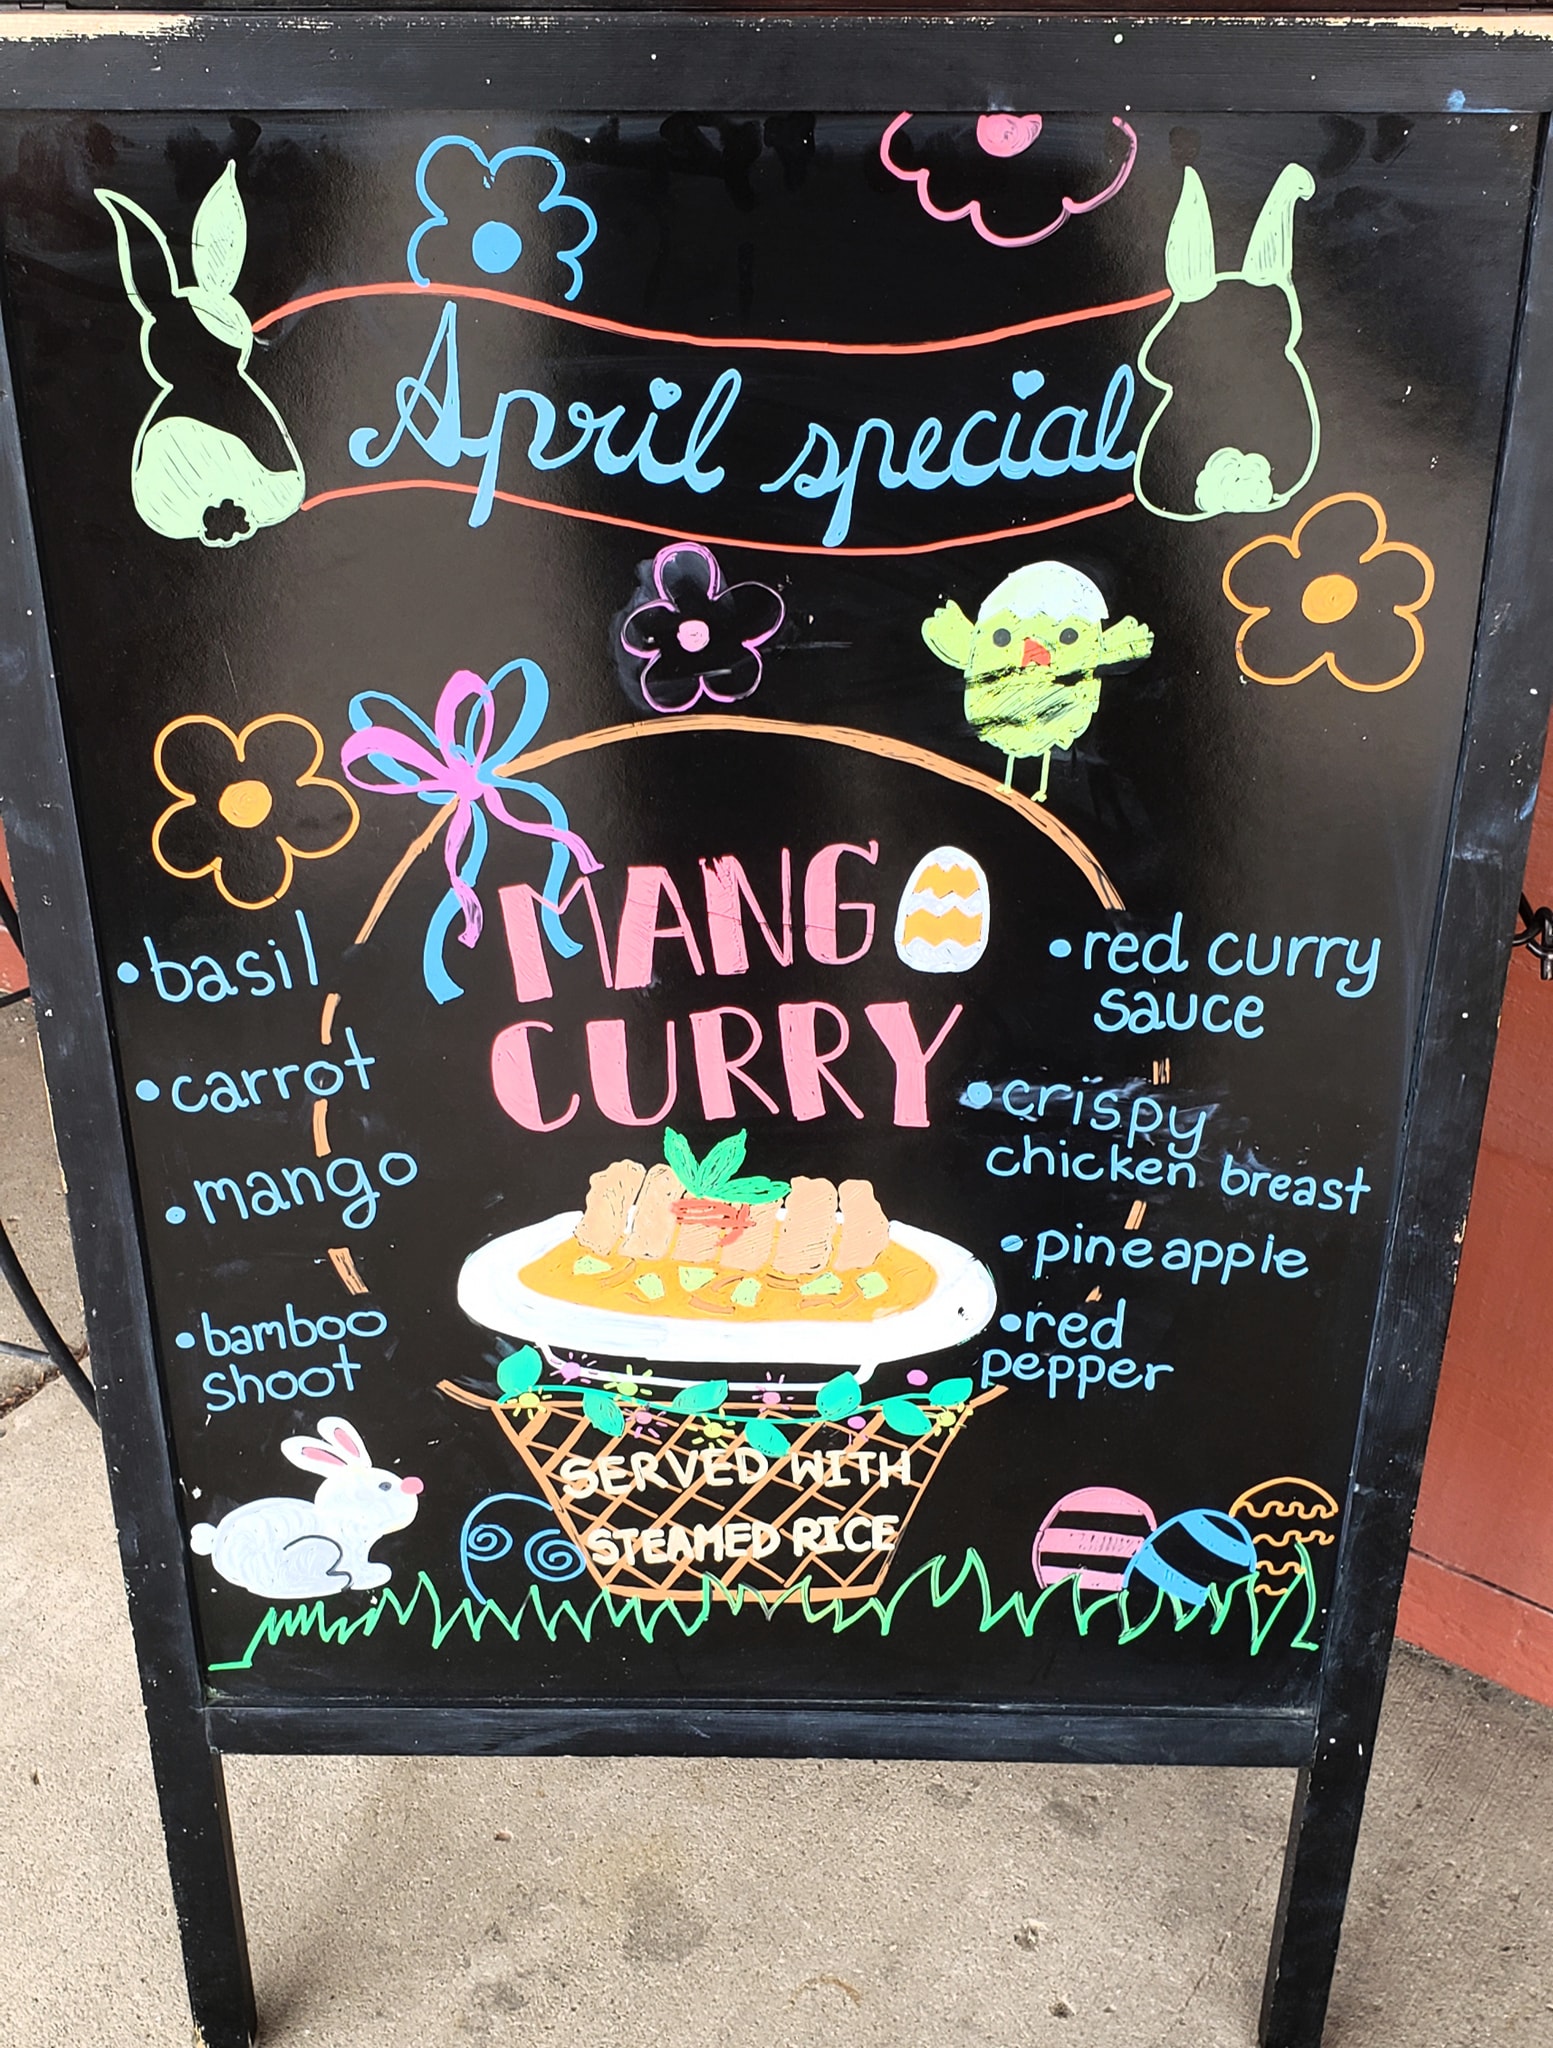 April special
MANGO
CURRY
• basil
• carrot
• mango
• bamboo
shoot
• red curry
sauce
• crispy
chicken breast
• pineapple
• red
pepper
SERVED WITH
STEAMED RICE